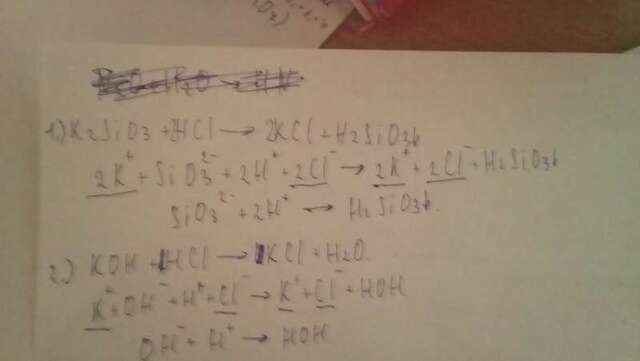 1) K2SiO3 + 2HCl → 2KCl + H2SiO3↓
2K⁺ + SiO3²⁻ + 2H⁺ + 2Cl⁻ → 2K⁺ + 2Cl⁻ + H2SiO3↓
SiO3²⁻ + 2H⁺ ↔ H2SiO3↓.
2.) KOH + HCl → KCl + H2O.
K⁺ + OH⁻ + H⁺ + Cl⁻ → K⁺ + Cl⁻ + HOH
OH⁻ + H⁺ → HOH